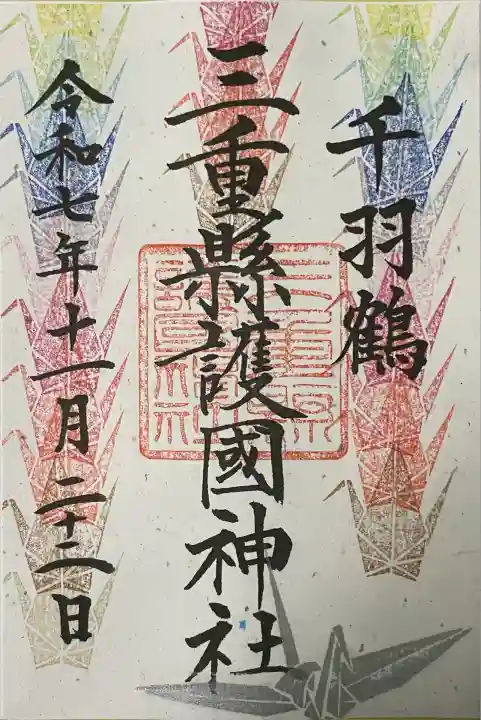 千羽鶴
三重縣護國神社
令和七年十一月二十二日